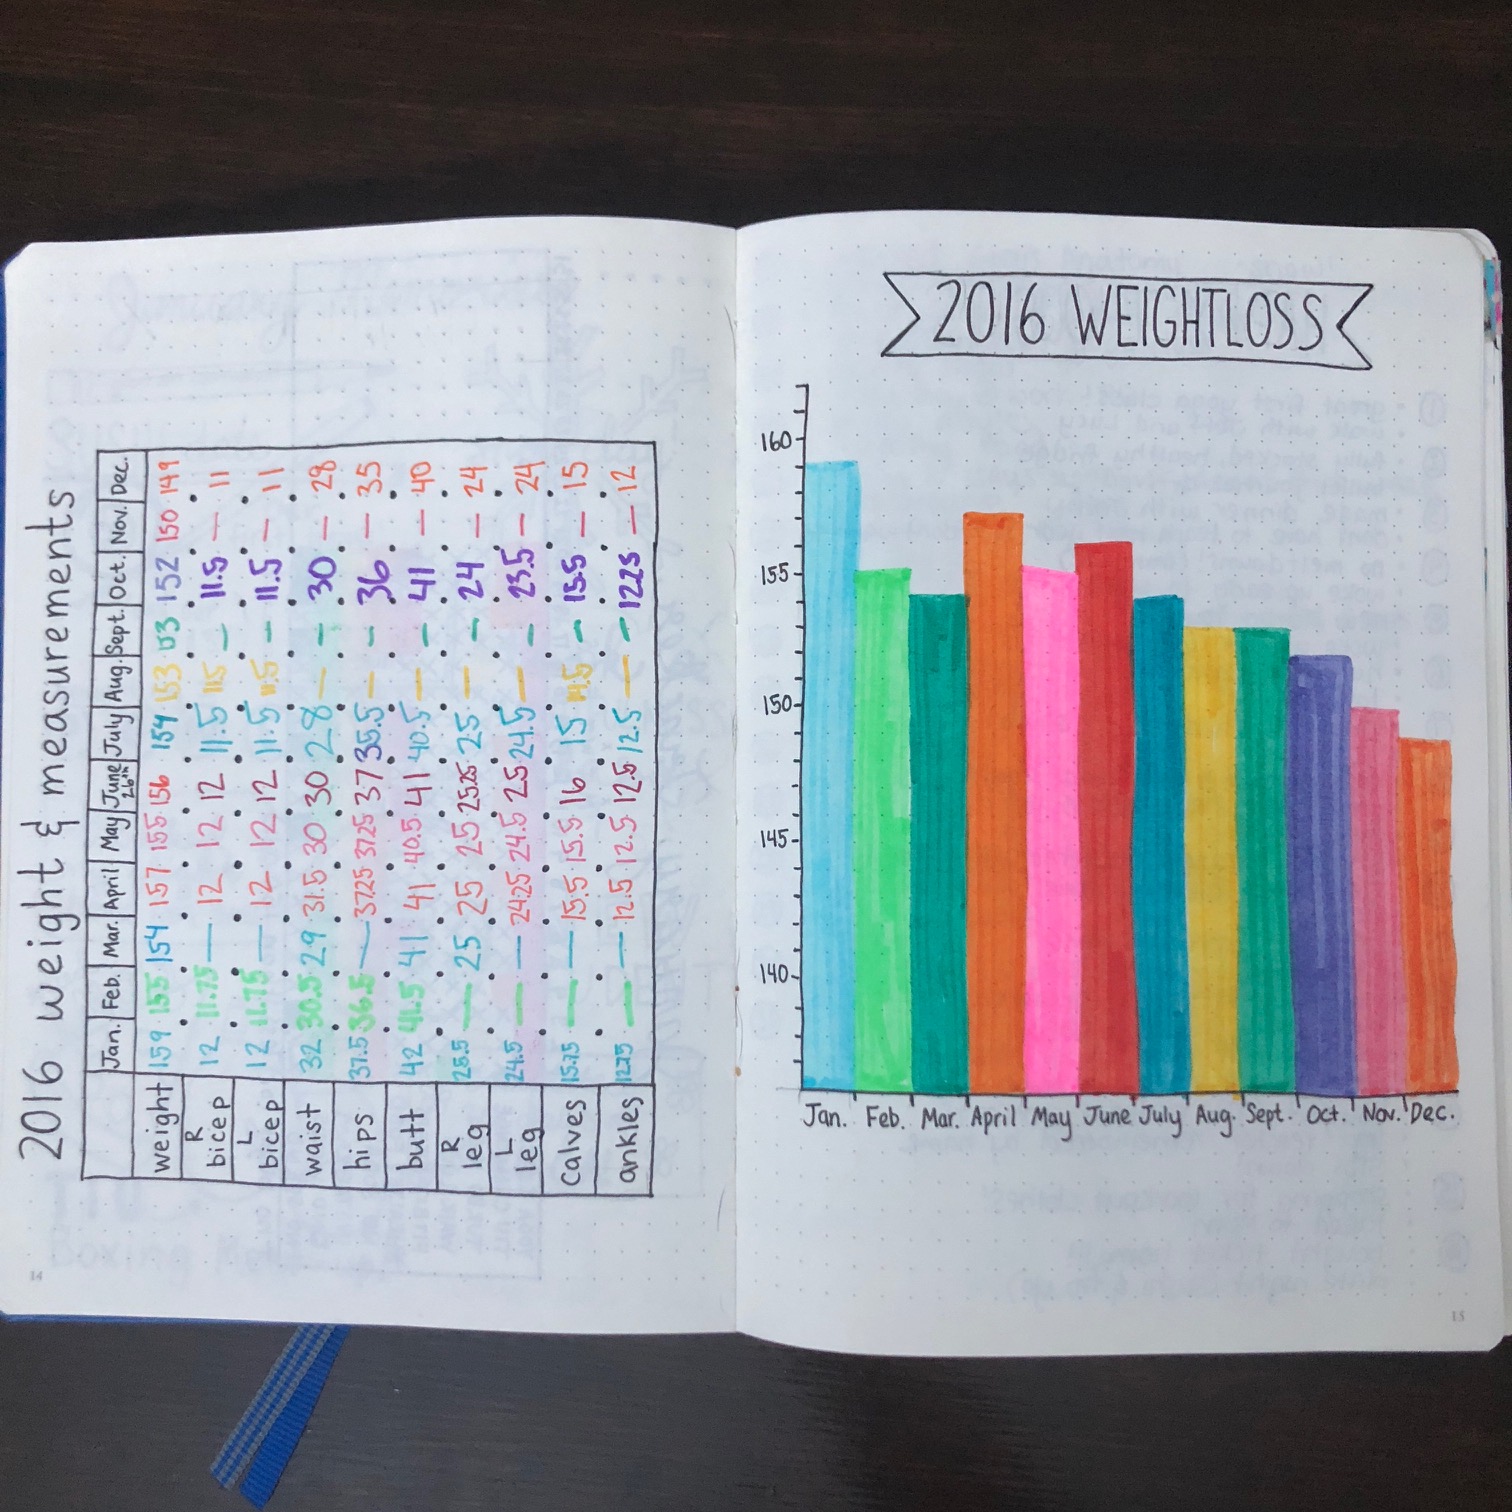 2016 weight & measurements
Jan. Feb. Mar. April May June 26th July Aug. Sept. Oct. Nov. Dec.
weight 159 155 154 157 155 156 154 153 153 152 150 149
R bicep 12 11.75 — 12 12 12 11.5 11.5 — 11.5 — 11
L bicep 12 11.75 — 12 12 12 11.5 11.5 — 11.5 — 11
waist 32 30.5 29 31.5 30 30 28 — — 30 — 28
hips 37.5 36.5 — 37.25 37.25 37 35.5 — — 36 — 35
butt 42 41.5 41 41 40.5 41 40.5 — — 41 — 40
R leg 25.5 — 25 25 25 25.25 25 — — 24 — 24
L leg 24.5 — — 24.25 24.5 25 24.5 — — 23.5 — 24
Calves 15.75 — — 15.5 15.5 16 15 14.5 — 15.5 — 15
ankles 12.75 — — 12.5 12.5 12.5 12.5 — — 12.25 — 12
14
2016 WEIGHTLOSS
160
155
150
145
140
Jan. Feb. Mar. April May June July Aug. Sept. Oct. Nov. Dec.
15